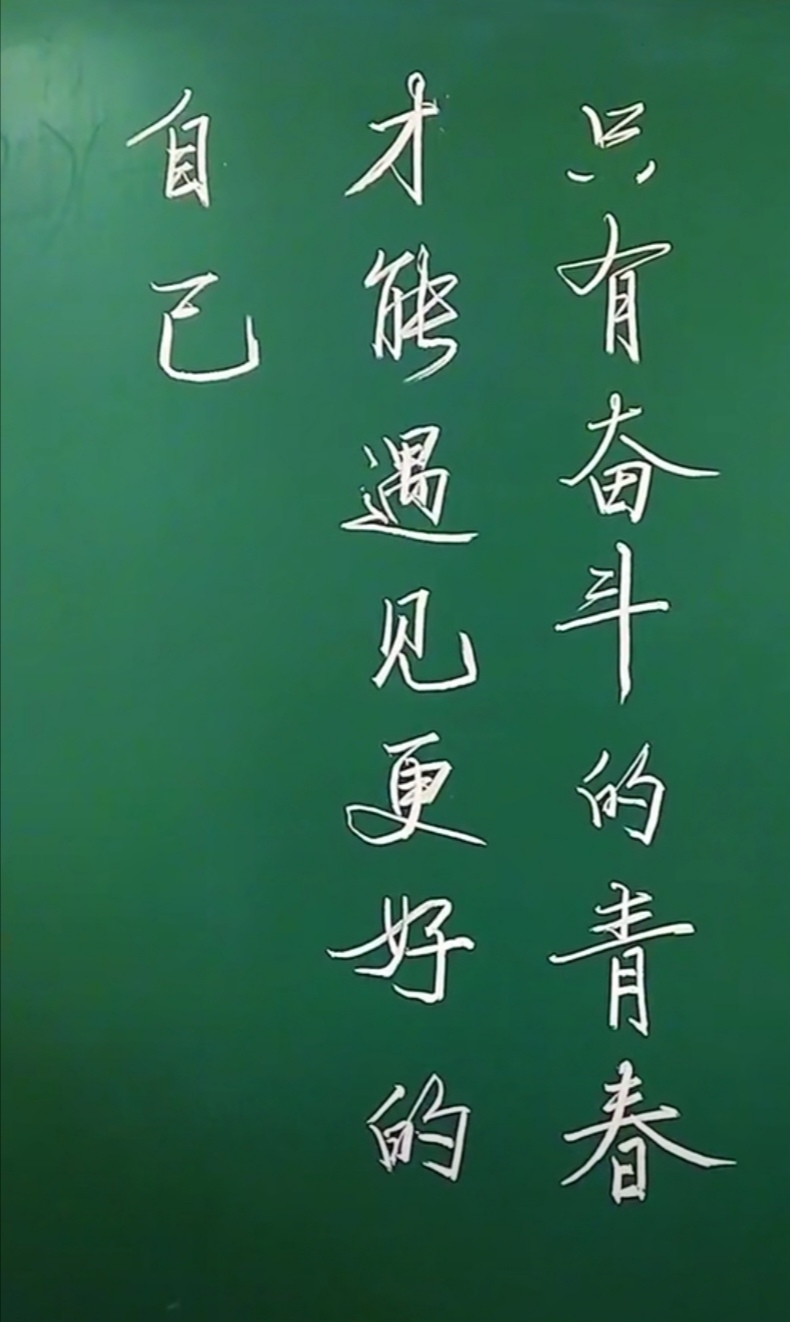 只有奋斗的青春
才能遇见更好的
自己